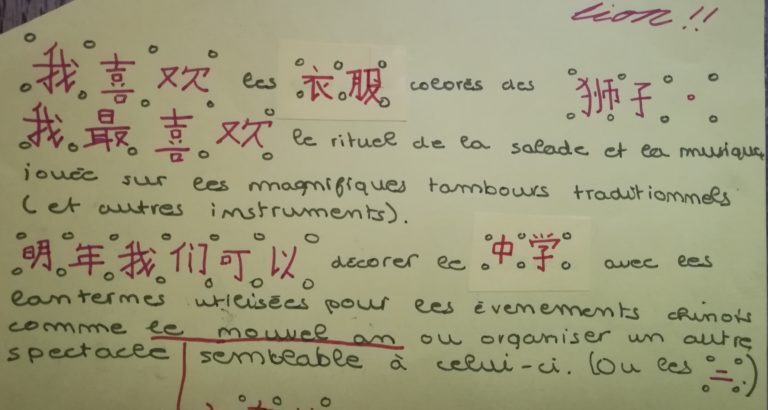 lion!!
我喜欢 les 衣服 colorés des 狮子.
我最喜欢 le rituel de la salade et la musique
jouée sur les magnifiques tambours traditionnels
(et autres instruments).
明年我们可以 décorer le 中学 avec les
lanternes utilisées pour les évenements chinois
comme le nouvel an ou organiser un autre
spectacle semblable à celui-ci. (Ou les 二.)